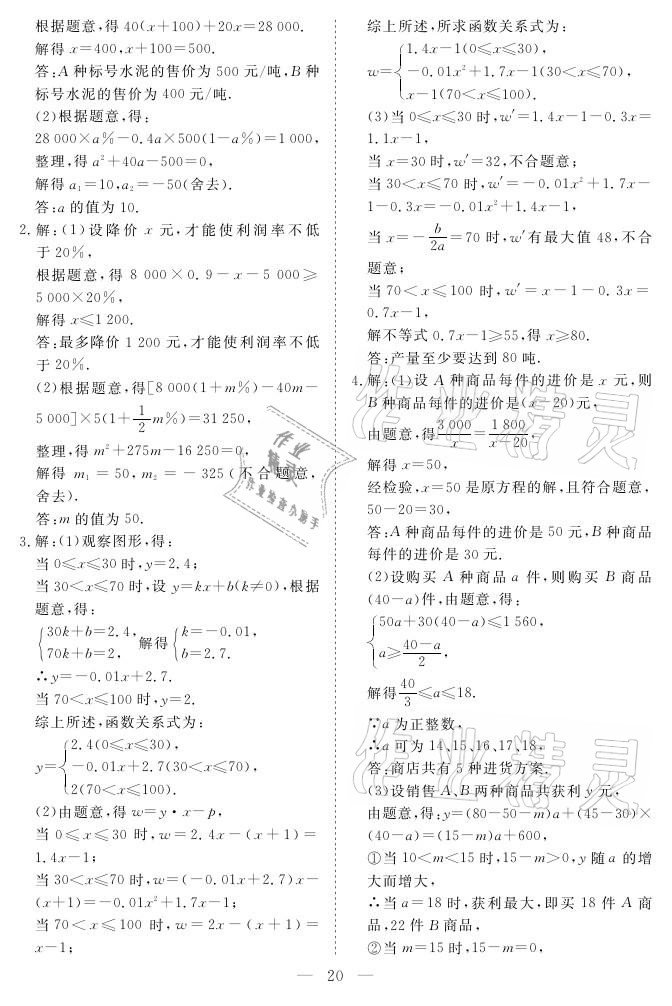 根据题意,得 40(x+100)+20x=28 000.
解得 x=400,x+100=500.
答:A 种标号水泥的售价为 500 元/吨,B 种
标号水泥的售价为 400 元/吨.
(2)根据题意,得:
28 000×a%-0.4a×500(1-a%)=1 000,
整理,得 a²+40a-500=0,
解得 a₁=10,a₂=-50(舍去).
答:a 的值为 10.
2. 解:(1)设降价 x 元,才能使利润率不低
于 20%,
根据题意,得 8 000×0.9-x-5 000≥
5 000×20%,
解得 x≤1 200.
答:最多降价 1 200 元,才能使利润率不
低于 20%.
(2)根据题意,得[8 000(1+m%)-40m-
5 000]×5(1+1/2 m%)=31 250,
整理,得 m²+275m-16 250=0,
解得 m₁=50,m₂=-325(不合题意,
舍去).
答:m 的值为 50.
3. 解:(1)观察图形,得:
当 0≤x≤30 时,y=2.4;
当 30<x≤70 时,设 y=kx+b(k≠0),根据
题意,得:
{30k+b=2.4, 解得 {k=-0.01,
70k+b=2, b=2.7.
∴y=-0.01x+2.7.
当 70<x≤100 时,y=2.
综上所述,函数关系式为:
y={2.4(0≤x≤30),
-0.01x+2.7(30<x≤70),
2(70<x≤100).
(2)由题意,得 w=y·x-p,
当 0≤x≤30 时,w=2.4x-(x+1)=
1.4x-1;
当 30<x≤70 时,w=(-0.01x+2.7)x-
(x+1)=-0.01x²+1.7x-1;
当 70<x≤100 时,w=2x-(x+1)=
x-1;
综上所述,所求函数关系式为:
w={1.4x-1(0≤x≤30),
-0.01x²+1.7x-1(30<x≤70),
x-1(70<x≤100).
(3)当 0≤x≤30 时,w′=1.4x-1-0.3x=
1.1x-1,
当 x=30 时,w′=32,不合题意;
当 30<x≤70 时,w′=-0.01x²+1.7x-
1-0.3x=-0.01x²+1.4x-1,
当 x=-b/2a=70 时,w′有最大值 48,不合
题意;
当 70<x≤100 时,w′=x-1-0.3x=
0.7x-1,
解不等式 0.7x-1≥55,得 x≥80.
答:产量至少要达到 80 吨.
4. 解:(1)设 A 种商品每件的进价是 x 元,则
B 种商品每件的进价是(x-20)元,
由题意,得 3 000/x=1 800/(x-20),
解得 x=50,
经检验,x=50 是原方程的解,且符合题意,
50-20=30,
答:A 种商品每件的进价是 50 元,B 种商品
每件的进价是 30 元.
(2)设购买 A 种商品 a 件,则购买 B 商品
(40-a)件,由题意,得:
{50a+30(40-a)≤1 560,
a≥(40-a)/2,
解得 40/3≤a≤18.
∵a 为正整数,
∴a 可为 14、15、16、17、18,
答:商店共有 5 种进货方案.
(3)设销售 A、B 两种商品共获利 y 元,
由题意,得:y=(80-50-m)a+(45-30)×
(40-a)=(15-m)a+600,
①当 10<m<15 时,15-m>0,y 随 a 的增
大而增大,
∴当 a=18 时,获利最大,即买 18 件 A 商
品,22 件 B 商品,
②当 m=15 时,15-m=0,
— 20 —
作业精灵
作业精灵
作业
精灵
作业检查小助手